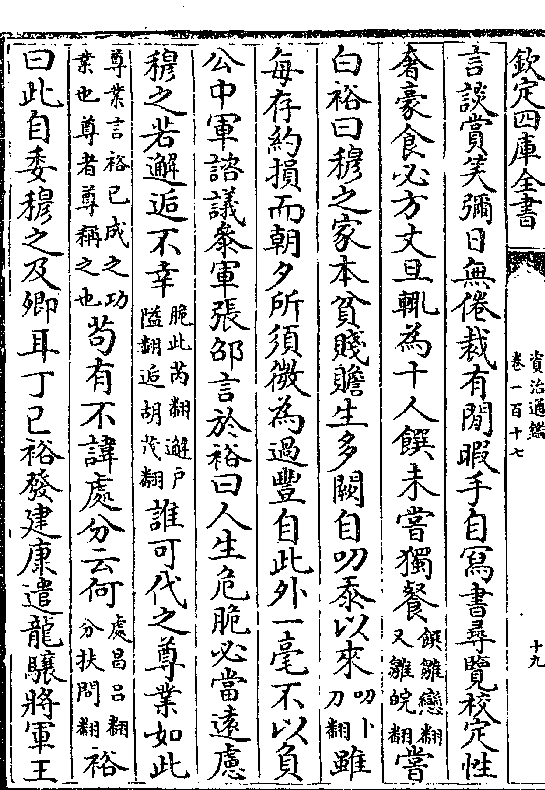 欽定四庫全書
資治通鑑
卷一百十七
十九
言談賞笑彌日無倦裁有閒暇手自寫書尋覽校定性
奢豪食必方丈旦輒為十人饌未嘗獨餐饌雛戀翻又雛皖翻嘗
白裕曰穆之家本貧賤贍生多闕自叨忝以來叨卜刀翻雖
每存約損而朝夕所須微為過豐自此外一毫不以負
公中軍諮議參軍張邵言於裕曰人生危脆必當遠慮
穆之若邂逅不幸脆此芮翻邂戶隘翻逅胡茂翻誰可代之尊業如此
尊業言裕已成之功業也尊者尊稱之也苟有不諱處分云何處昌呂翻分扶問翻裕
曰此自委穆之及卿耳丁巳裕發建康遣龍驤將軍王